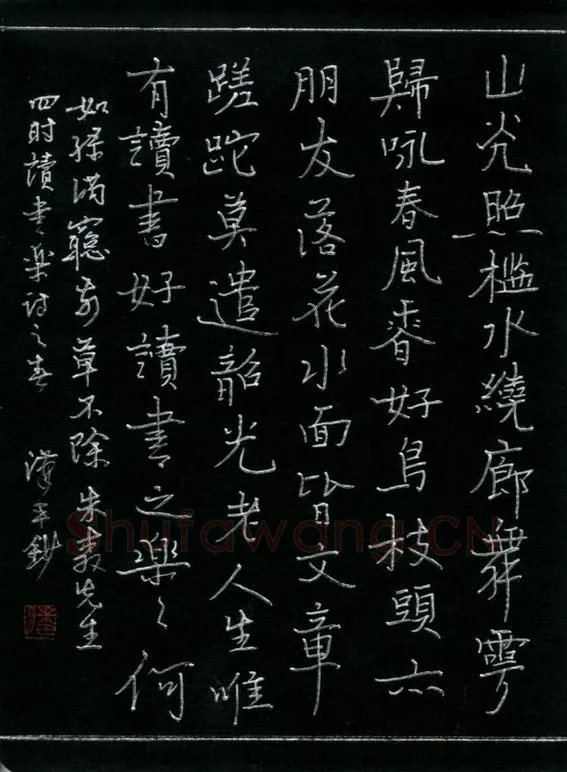 山光照槛水繞廊舞雩
歸咏春風香好鳥枝頭亦
朋友落花水面皆文章
蹉跎莫遣韶光老人生唯
有讀書好讀書之樂々何
如绿满窻前草不除 朱熹先生
四时讀书樂诗之春 平鈔
Shufawang.CN